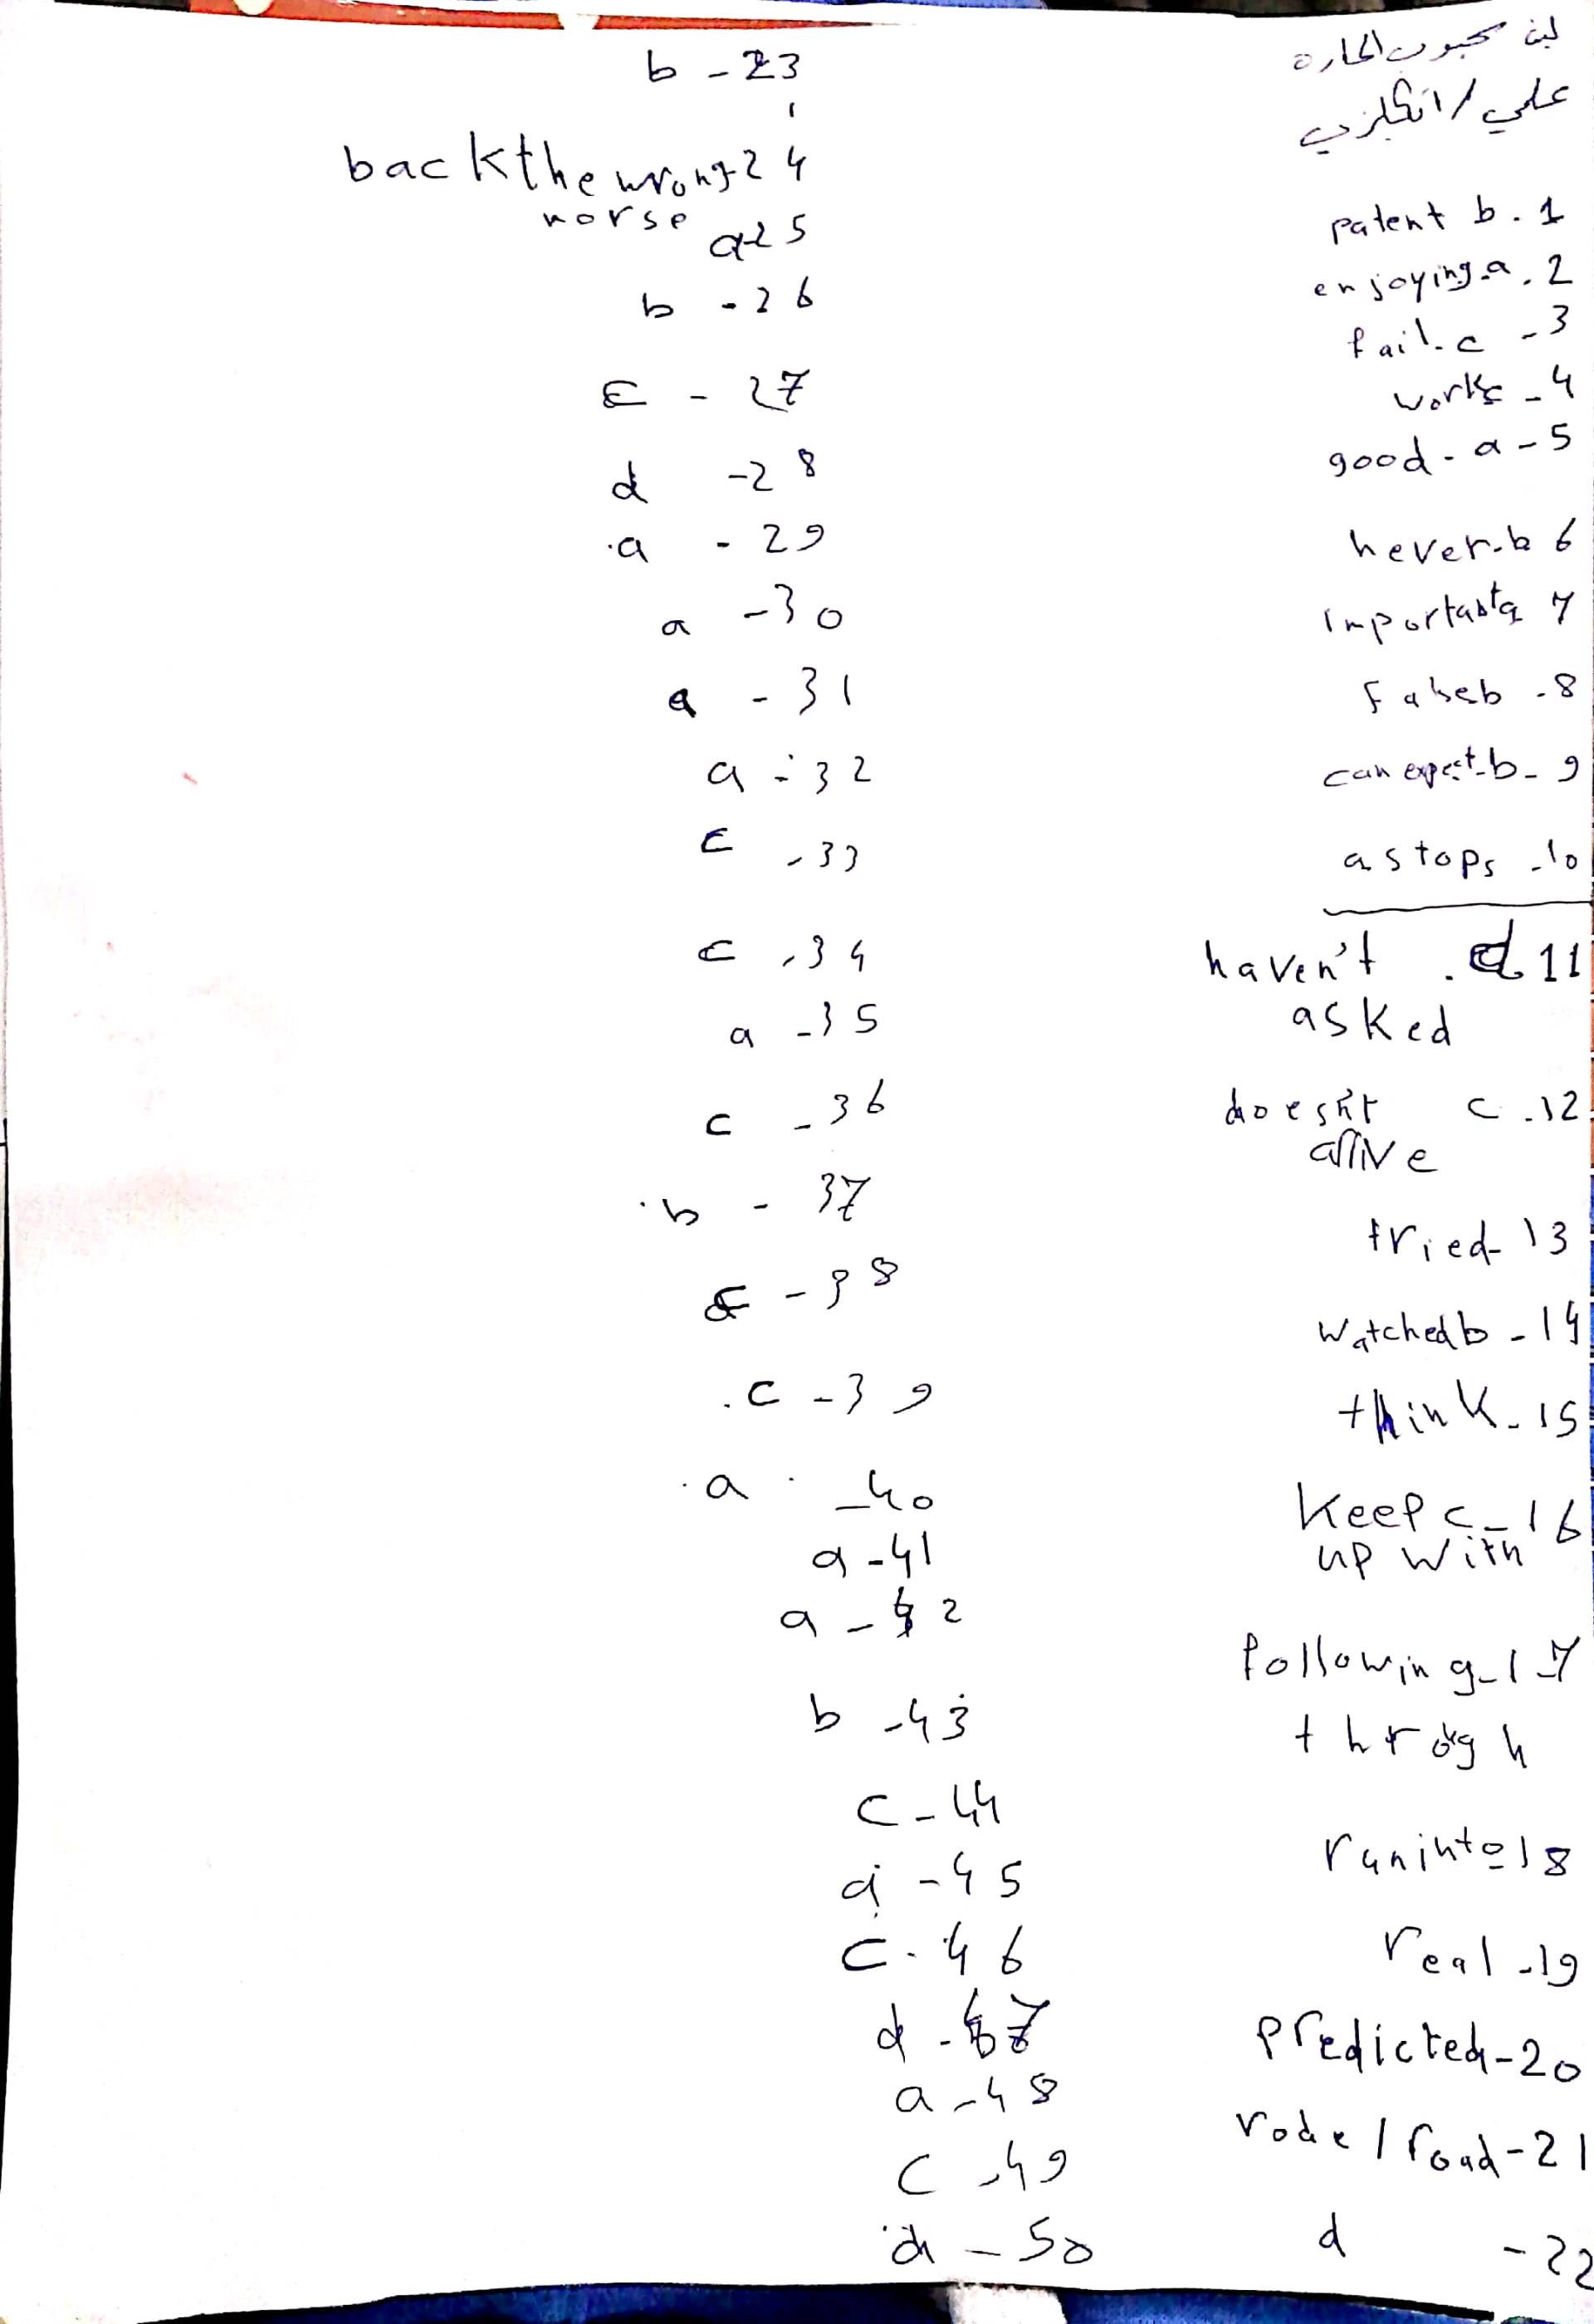 لبنى محبوب الحاره
علمي / انكليزي
patent b . 1
enjoying . a . 2
fail - c - 3
works - 4
good - a - 5
never - b 6
importasta 7
false b - 8
can expect - b - 9
a stops - 10
haven't . d 11
asked
doesn't c . 12
arrive
tried - 13
watched b - 14
think - 15
keep c - 16
up with
following - 17
throgh
run into 18
real - 19
predicted - 20
rode / road - 21
d - 22
b - 23
back the wrong - 24
horse
a - 25
b - 26
c - 27
d - 28
a - 29
a - 30
a - 31
a - 32
c - 33
c - 34
a - 35
c - 36
b - 37
c - 38
c - 39
a - 40
a - 41
a - 42
b - 43
c - 44
d - 45
c - 46
d - 47
a - 48
c - 49
d - 50